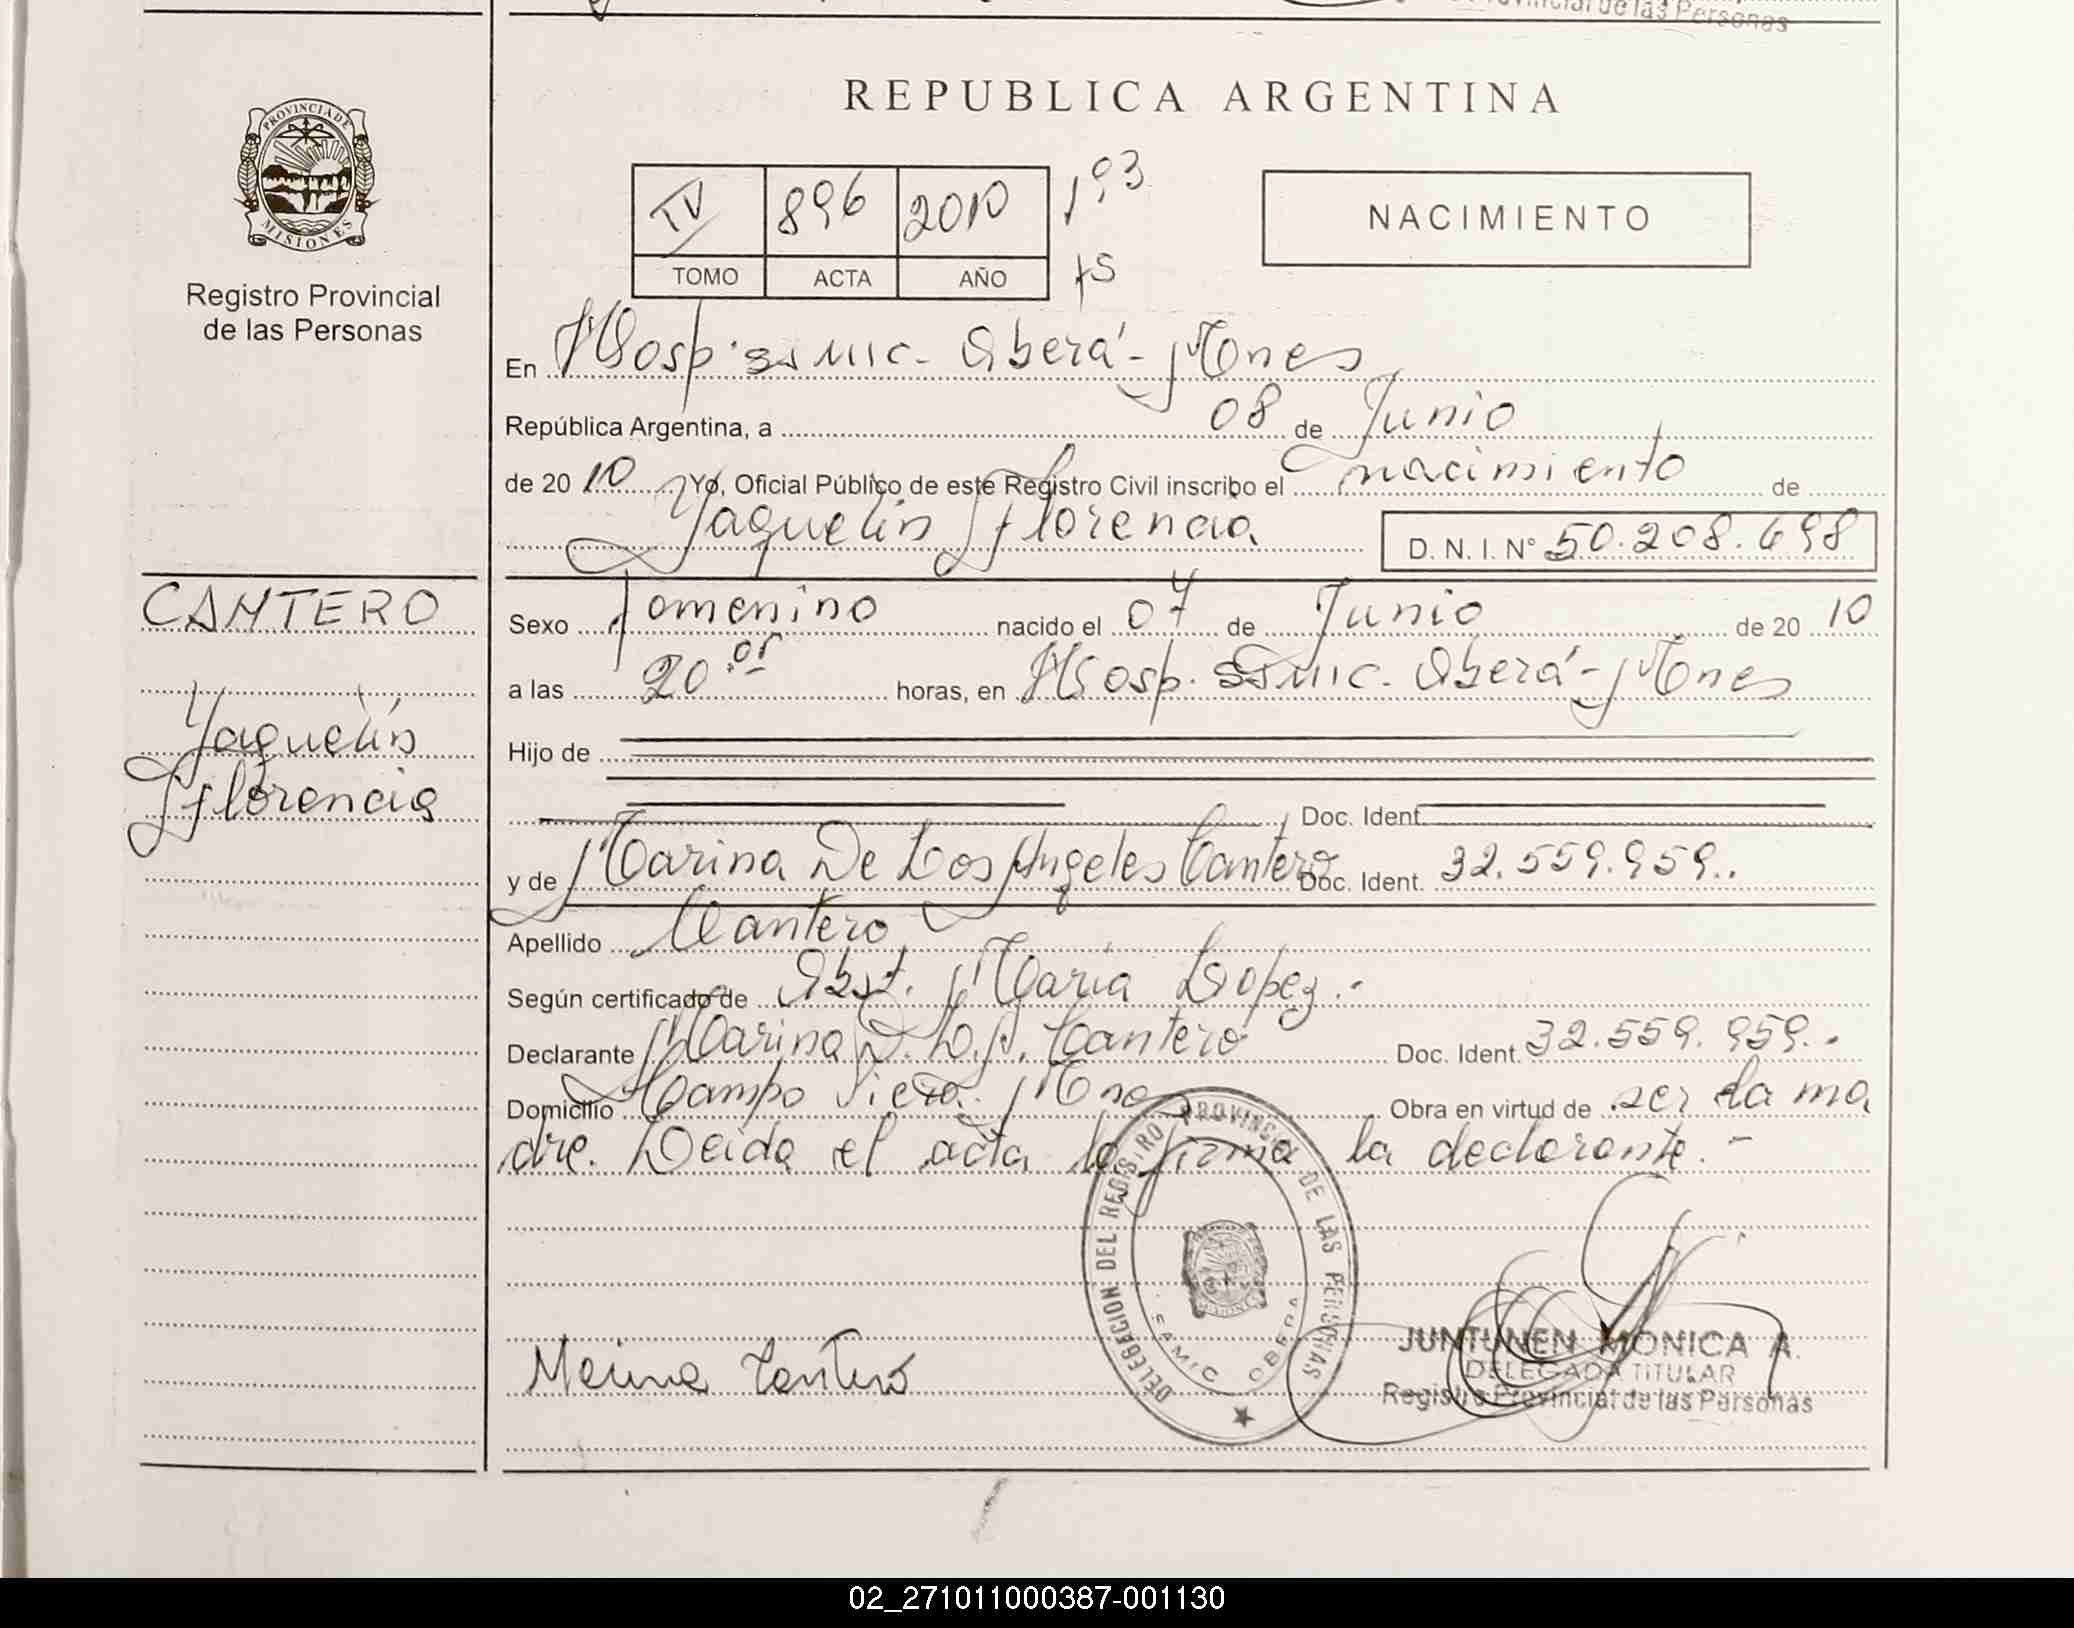 Provincial de las Personas
PROVINCIA DE
MISIONES
Registro Provincial
de las Personas
REPUBLICA ARGENTINA
IV 896 2010 193
TOMO ACTA AÑO
NACIMIENTO
En Hosp. SAMIC - Oberá - Mnes
República Argentina, a 08 de Junio
de 2010 Yo, Oficial Público de este Registro Civil inscribo el nacimiento de
Yaquelin Florencia D. N. I. Nº 50.208.698
CANTERO
Yaquelin
Florencia
Sexo Femenino nacido el 07 de Junio de 2010
a las 20 05 horas, en Hosp. SAMIC. Oberá - Mnes
Hijo de
Doc. Ident.
y de Marina De Los Angeles Cantero Doc. Ident. 32.559.959..
Apellido Cantero
Según certificado de Obst. Maria Lopez.-
Declarante Marina D. L. A. Cantero Doc. Ident. 32.559.959..
Domicilio Campo Viera. Mnes Obra en virtud de ser la ma
dre. Leida el acta la firma la declarante. -
DELEGACION DEL REGISTRO PROVINCIAL DE LAS PERSONAS
SAMIC OBERA
MISIONES
Marina Cantero
JUNTUNEN MONICA A.
DELEGADA TITULAR
Registro Provincial de las Personas
02_271011000387-001130